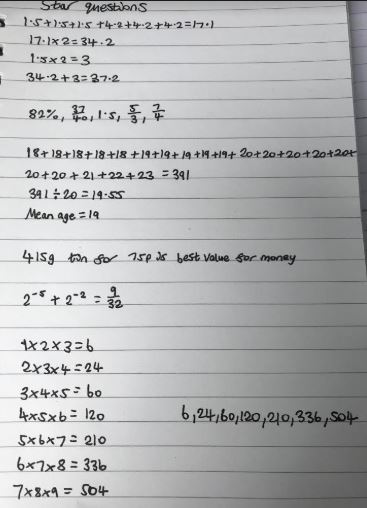 Star questions
1.5+1.5+1.5+4.2+4.2+4.2=17.1
17.1x2=34.2
1.5x2=3
34.2+3=37.2
82%, 37/40, 1.5, 5/3, 7/4
18+18+18+18+18+19+19+19+19+19+20+20+20+20+20+
20+20+21+22+23=391
391÷20=19.55
Mean age=19
415g tin for 75p is best value for money
2⁻⁵+2⁻²=9/32
1x2x3=6
2x3x4=24
3x4x5=60
4x5x6=120 6,24,60,120,210,336,504
5x6x7=210
6x7x8=336
7x8x9=504